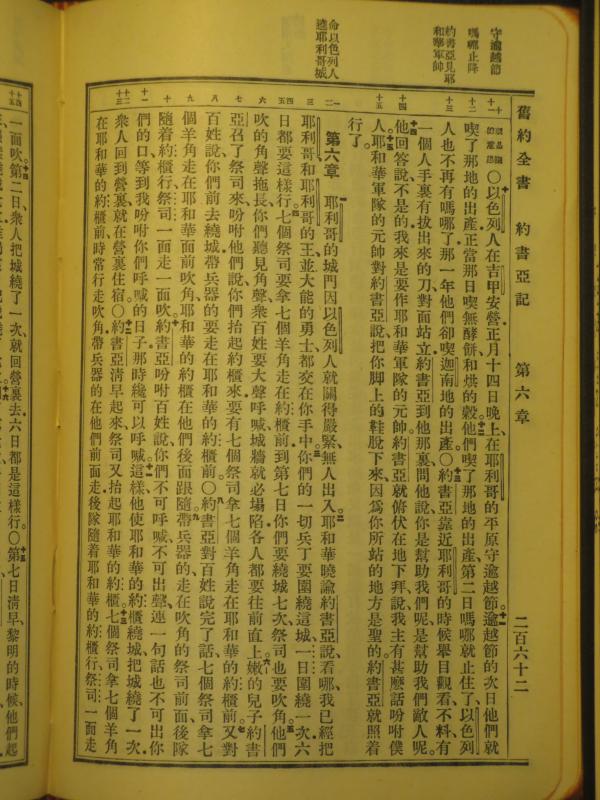 守逾越節
嗎哪止降
約書亞見耶
和華軍帥
命以色列人
遶耶利哥城
舊約全書 約書亞記 第六章 二百六十二
○以色列人在吉甲安營正月十四日晚上、在耶利哥的平原守逾越節。十一逾越節的次日他們就
喫了那地的出產正當那日喫無酵餅和烘的穀。十二他們喫了那地的出產第二日嗎哪就止住了、以色列
人也不再有嗎哪了那一年他們卻喫迦南地的出產。○十三約書亞靠近耶利哥的時候、舉目觀看、不料、有
一個人手裏有拔出來的刀對面站立約書亞到他那裏問他說你是幫助我們呢是幫助我們敵人呢。
十四他回答說不是的我來是要作耶和華軍隊的元帥約書亞就俯伏在地下拜說我主有甚麼話吩咐僕
人。十五耶和華軍隊的元帥對約書亞說把你脚上的鞋脫下來、因爲你所站的地方是聖的約書亞就照着
行了。
第六章 一耶利哥的城門因以色列人就關得嚴緊無人出入。二耶和華曉諭約書亞說看哪我已經把
耶利哥和耶利哥的王並大能的勇士都交在你手中。三你們的一切兵丁要圍繞這城一日圍繞一次、六
日都要這樣行。四七個祭司要拿七個羊角走在約櫃前到第七日你們要繞城七次祭司也要吹角。五他們
吹的角聲拖長你們聽見角聲衆百姓要大聲呼喊城牆就必塌陷各人都要往前直上。六嫩的兒子約書
亞召了祭司來吩咐他們說你們抬起約櫃來要有七個祭司拿七個羊角走在耶和華的約櫃前。七又對
百姓說你們前去繞城帶兵器的要走在耶和華的約櫃前。○八約書亞對百姓說完了話七個祭司拿七
個羊角走在耶和華面前吹角耶和華的約櫃在他們後面跟隨。九帶兵器的走在吹角的祭司前面、後隊
隨着約櫃行祭司一面走一面吹。十約書亞吩咐百姓說你們不可呼喊不可出聲連一句話也不可出你
們的口等到我吩咐你們呼喊的日子那時纔可以呼喊。十一這樣他使耶和華的約櫃繞城、把城繞了一次、
衆人回到營裏就在營裏住宿。○十二約書亞淸早起來祭司又抬起耶和華的約櫃。十三七個祭司拿七個羊角
在耶和華的約櫃前時常行走吹角帶兵器的在他們前面走後隊隨着耶和華的約櫃行祭司一面走
一面吹。十四第二日衆人把城繞了一次就回營裏去六日都是這樣行。○十五第七日淸早黎明的時候、他們起